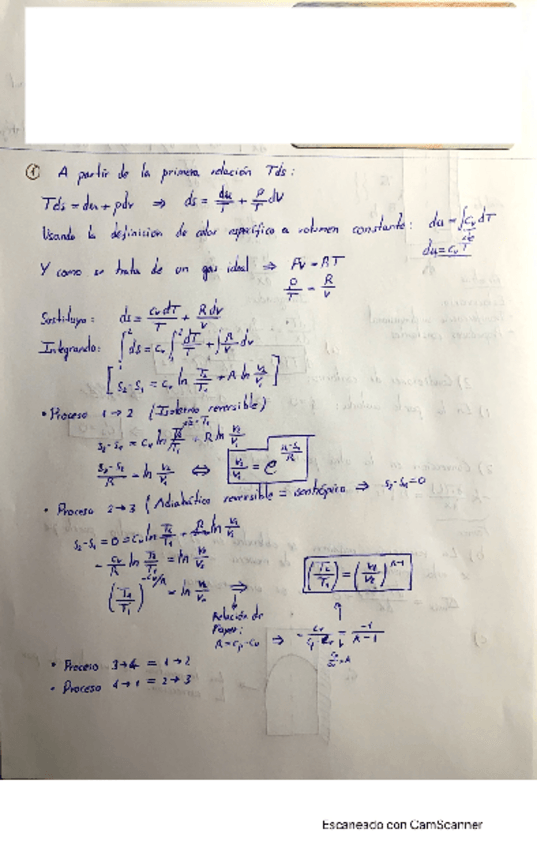 ① A partir de la primera relación Tds:
Tds = du + pdv ⇒ ds = du/T + P/T dv
Usando la definición de calor específico a volumen constante: du = ∫cv dT
du = cv T
Y como se trata de un gas ideal ⇒ Pv = RT
P/T = R/v
Sustituyo: ds = cv dT/T + R dv/v
Integrando: ∫₁² ds = cv ∫₁² dT/T + ∫ R/v dv
[s2 - s1 = cv ln T2/T1 + R ln v2/v1]
• Proceso 1 → 2 (Isotermo reversible)
s2 - s1 = cv ln T2/T1 + R ln v2/v1
s2-s1/R = ln v2/v1 ⇔ v2/v1 = e^(s2-s1/R)
• Proceso 2 → 3 (Adiabático reversible = isentrópico ⇒ s2-s1 = 0
s2-s1 = 0 = cv ln T2/T1 + R ln v2/v1
- cv/R ln T2/T1 = ln v2/v1
(T2/T1)^(-cv/R) = ln v2/v1 ⇒ (T2/T1) = (v1/v2)^(k-1)
Relación de
Mayer:
R = cp - cv ⇒ - cv/cp-cv = -1/k-1
cp/cv = k
• Proceso 3 → 4 = 1 → 2
• Proceso 4 → 1 = 2 → 3
Escaneado con CamScanner